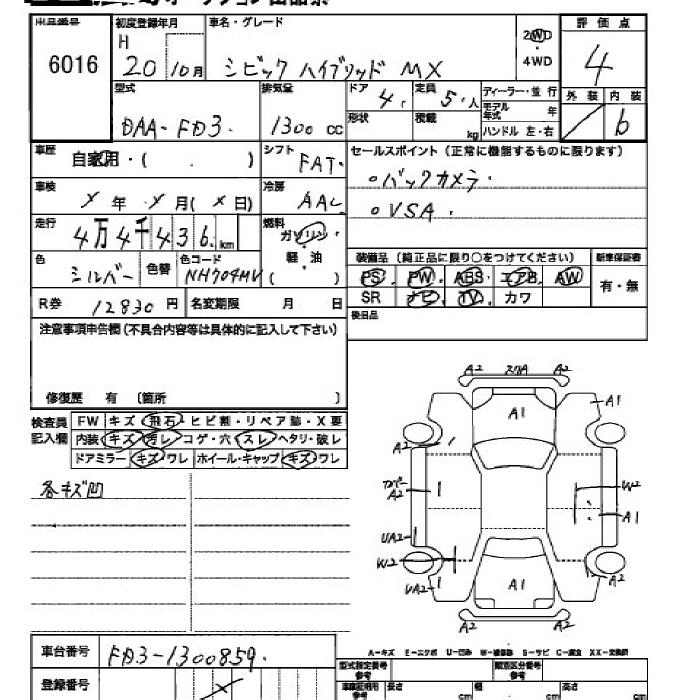 出品番号 初度登録年月 車名・グレード 評価点
6016 H 20 10月 シビック ハイブリッド MX 2WD・4WD 4
型式 排気量 ドア 4 定員 5・人 ディーラー・並行 外装 内装
DAA-FD3. 1300 cc 形状 積載 kg モデル年式 年 ハンドル 左・右 b
車歴 自家用・( ) シフト FAT. セールスポイント(正常に機能するものに限ります)
車検 X年 X月(X日) 冷房 AAC ○バックカメラ.
走行 4万4千436km 燃料 ガソリン 軽・油 ( ) ○VSA.
色 シルバー 色替 色コード NH704MV 装備品(純正品に限り○をつけてください) 新車保証書
PS. PW. ABS. エアB. AW 有・無
R券 12830円 名変期限 月 日 SR ナビ. TV. カワ
後日品
注意事項申告欄(不具合内容等は具体的に記入して下さい)
修復歴 有 〔箇所 〕
検査員記入欄 FW キズ・飛石・ヒビ割・リペア跡・X要
内装 キズ・汚レ・コゲ・穴・スレ・ヘタリ・破レ
ドアミラー キズ・ワレ ホイール・キャップ キズ・ワレ
各キズ凹
A2 スリA A2
A1 A1
A2
A2 W2
A1
UA2
W2
UA2 A1 A2
A2 A2
A-キズ E-エクボ U-凹み W-補修跡 S-サビ C-腐食 XX-交換済
車台番号 FD3-1300859.
型式指定番号 参考 類別区分番号 参考
登録番号 X 車庫証明用 参考 長さ cm 幅 cm 高さ cm